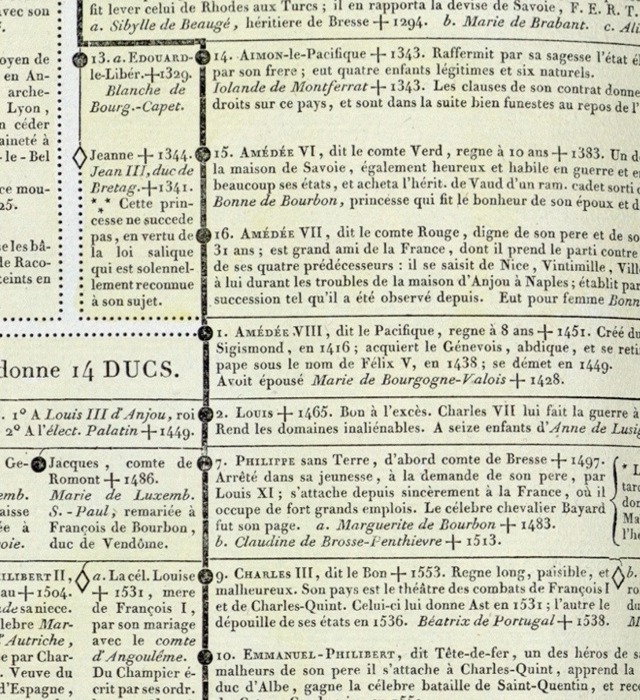 avec son
fit lever celui de Rhodes aux Turcs ; il en rapporta la devise de Savoie, F. E. R. T.
a. Sibylle de Beaugé, héritiere de Bresse + 1294. b. Marie de Brabant. c. Ali
oyen de
en An-
arche-
Lyon,
n céder
aineté à
-le-Bel
ce mou-
25.
se les bâ-
de Raco-
teints en
13. a. EDOUARD-
le-Libér. + 1329.
Blanche de
Bourg.-Capet.
Jeanne + 1344.
Jean III, duc de
Bretag. + 1341.
*** Cette prin-
cesse ne succede
pas, en vertu de
la loi salique
qui est solennel-
lement reconnue
à son sujet.
14. AIMON-le-Pacifique + 1343. Raffermit par sa sagesse l'état é
par son frere ; eut quatre enfants légitimes et six naturels.
Iolande de Montferrat + 1343. Les clauses de son contrat donne
droits sur ce pays, et sont dans la suite bien funestes au repos de l'
15. AMÉDÉE VI, dit le comte Verd, regne à 10 ans + 1383. Un d
la maison de Savoie, également heureux et habile en guerre et e
beaucoup ses états, et acheta l'hérit. de Vaud d'un ram. cadet sorti
Bonne de Bourbon, princesse qui fit le bonheur de son époux et d
16. AMÉDÉE VII, dit le comte Rouge, digne de son pere et de so
31 ans ; est grand ami de la France, dont il prend le parti contre
de ses quatre prédécesseurs : il se saisit de Nice, Vintimille, Vill
à lui durant les troubles de la maison d'Anjou à Naples ; établit par
succession tel qu'il a été observé depuis. Eut pour femme Bonn
donne 14 DUCS.
1. AMÉDÉE VIII, dit le Pacifique, regne à 8 ans + 1451. Créé du
Sigismond, en 1416 ; acquiert le Génevois, abdique, et se reti
pape sous le nom de Félix V, en 1438 ; se démet en 1449.
Avoit épousé Marie de Bourgogne-Valois + 1428.
. 1º A Louis III d'Anjou, roi
2º A l'élect. Palatin + 1449.
2. Louis + 1465. Bon à l'excès. Charles VII lui fait la guerre à
Rend les domaines inaliénables. A seize enfants d'Anne de Lusig
Ge-
emb.
aisse
ée à
oie.
Jacques, comte de
Romont + 1486.
Marie de Luxemb.
S.-Paul, remariée à
François de Bourbon,
duc de Vendôme.
7. PHILIPPE sans Terre, d'abord comte de Bresse + 1497.
Arrêté dans sa jeunesse, à la demande de son pere, par
Louis XI ; s'attache depuis sincèrement à la France, où il
occupe de fort grands emplois. Le célebre chevalier Bayard
fut son page. a. Marguerite de Bourbon + 1483.
b. Claudine de Brosse-Penthievre + 1513.
* L
tard
don
Ma
l'h
ILIBERT II,
au + 1504.
de sa niece.
lebre Mar-
'Autriche,
e par Char-
. Veuve du
d'Espagne,
a. La cél. Louise
+ 1531, mere
de François I,
par son mariage
avec le comte
d'Angoulême.
Du Champier é-
crit par ses ordr.
9. CHARLES III, dit le Bon + 1553. Regne long, paisible, et
malheureux. Son pays est le théâtre des combats de François I
et de Charles-Quint. Celui-ci lui donne Ast en 1531 ; l'autre le
dépouille de ses états en 1536. Béatrix de Portugal + 1538.
b.
ro
du
M
10. EMMANUEL-PHILIBERT, dit Tête-de-fer, un des héros de s
malheurs de son pere il s'attache à Charles-Quint, apprend la
duc d'Albe, gagne la célebre bataille de Saint-Quentin, et re